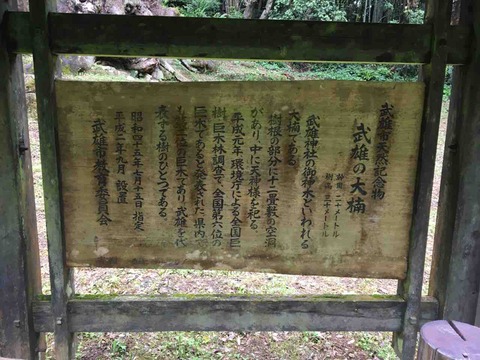 武雄市天然記念物
武雄の大楠
幹周 二十メートル
樹高 三十メートル
武雄神社の御神木といわれる
大楠である。
樹根の部分に十二畳敷の空洞
があり、中に天神様を祀る。
平成元年、環境庁による全国巨
樹・巨木林調査で、全国第六位の
巨木であると発表された。県内
第 位の巨木であり、武雄を代
表する樹のひとつである。
昭和四十五年七月十五日 指定
平成 年九月 設置
武雄市教育委員会